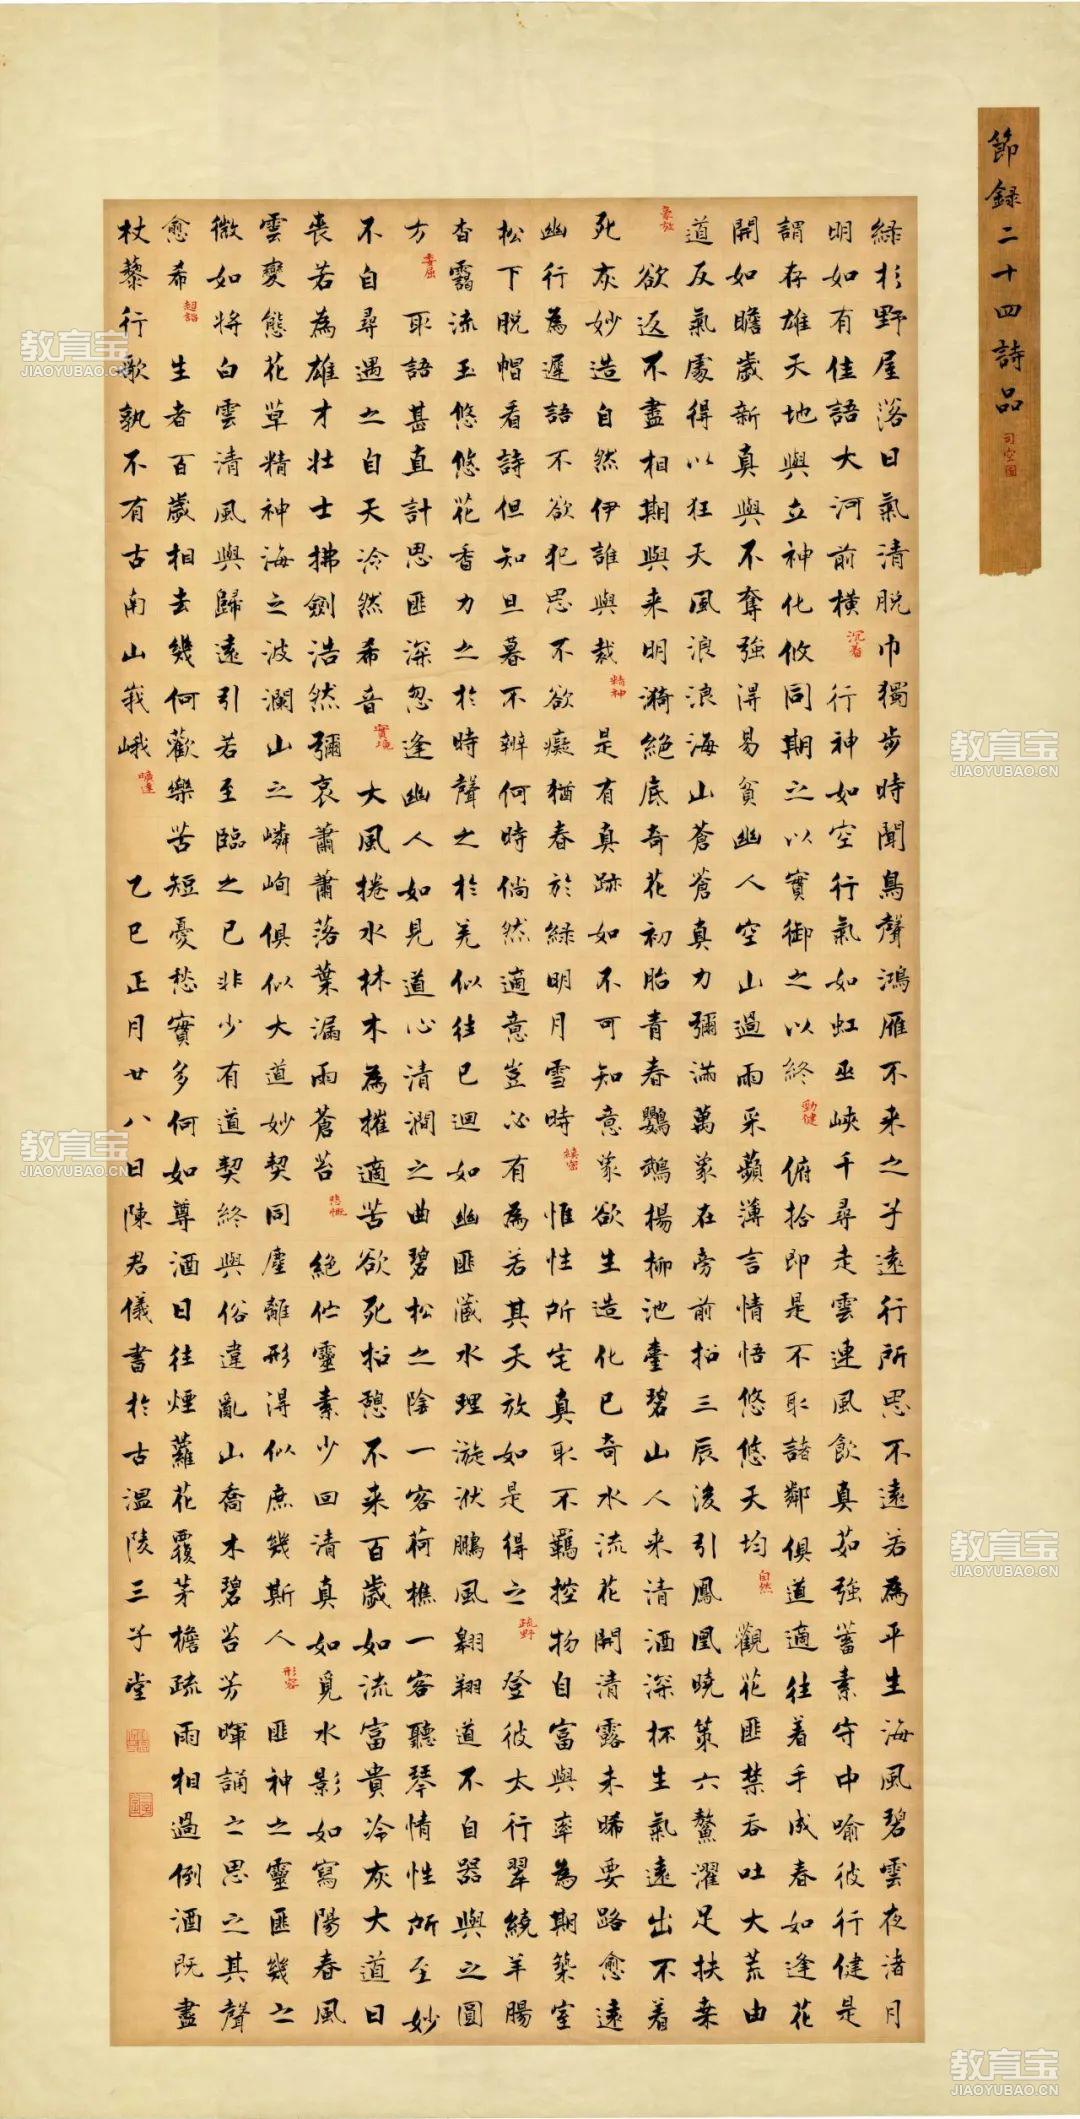 節録二十四詩品 司空圖
緑杉野屋落日氣清脱巾獨步時聞鳥聲鴻雁不来之子遠行所思不遠若為平生海風碧雲夜渚月
明如有佳語大河前横 沉着 行神如空行氣如虹巫峽千尋走雲連風飲真茹強蓄素守中喻彼行健是
謂存雄天地與立神化攸同期之以實御之以終 勁健 俯拾即是不取諸鄰俱道適往着手成春如逢花
開如瞻歲新真與不奪強得易貧幽人空山過雨采蘋薄言情悟悠悠天均 自然 觀花匪禁吞吐大荒由
道反氣處得以狂天風浪浪海山蒼蒼真力彌滿萬象在旁前招三辰後引鳳凰曉策六鰲濯足扶桒
豪放 欲返不盡相期與来明漪絶底奇花初胎青春鸚鵡楊柳池臺碧山人来清酒深杯生氣遠出不着
死灰妙造自然伊誰與裁 精神 是有真跡如不可知意象欲生造化已奇水流花開清露未晞要路愈遠
幽行為遲語不欲犯思不欲癡猶春於緑明月雪時 縝密 惟性所宅真取不羈控物自富與率為期築室
松下脱帽看詩但知旦暮不辨何時倘然適意豈必有為若其天放如是得之 疏野 登彼太行翠繞羊腸
杳靄流玉悠悠花香力之於時聲之於羌似往已迴如幽匪藏水理漩洑鵬風翱翔道不自器與之圓
方 委屈 取語甚直計思匪深忽逢幽人如見道心清澗之曲碧松之陰一客荷樵一客聽琴情性所至妙
不自尋遇之自天泠然希音 實境 大風捲水林木為摧適苦欲死招憩不来百歲如流富貴冷灰大道日
喪若為雄才壯士拂劍浩然彌哀蕭蕭落葉漏雨蒼苔 悲慨 絶佇靈素少回清真如覓水影如寫陽春風
雲變態花草精神海之波瀾山之嶙峋俱似大道妙契同塵離形得似庶幾斯人 形容 匪神之靈匪幾之
微如將白雲清風與歸遠引若至臨之已非少有道契終與俗違亂山喬木碧苔芳暉誦之思之其聲
愈希 超詣 生者百歲相去幾何歡樂苦短憂愁實多何如尊酒日往煙蘿花覆茅檐疏雨相過倒酒既盡
杖藜行歌孰不有古南山峩峨 曠達 乙巳正月廿八日陳君儀書於古温陵三子堂
教育宝
JIAOYUBAO.CN
教育宝
JIAOYUBAO.CN
教育宝
JIAOYUBAO.CN
教育宝
JIAOYUBAO.CN
教育宝
JIAOYUBAO.CN
教育宝
JIAOYUBAO.CN